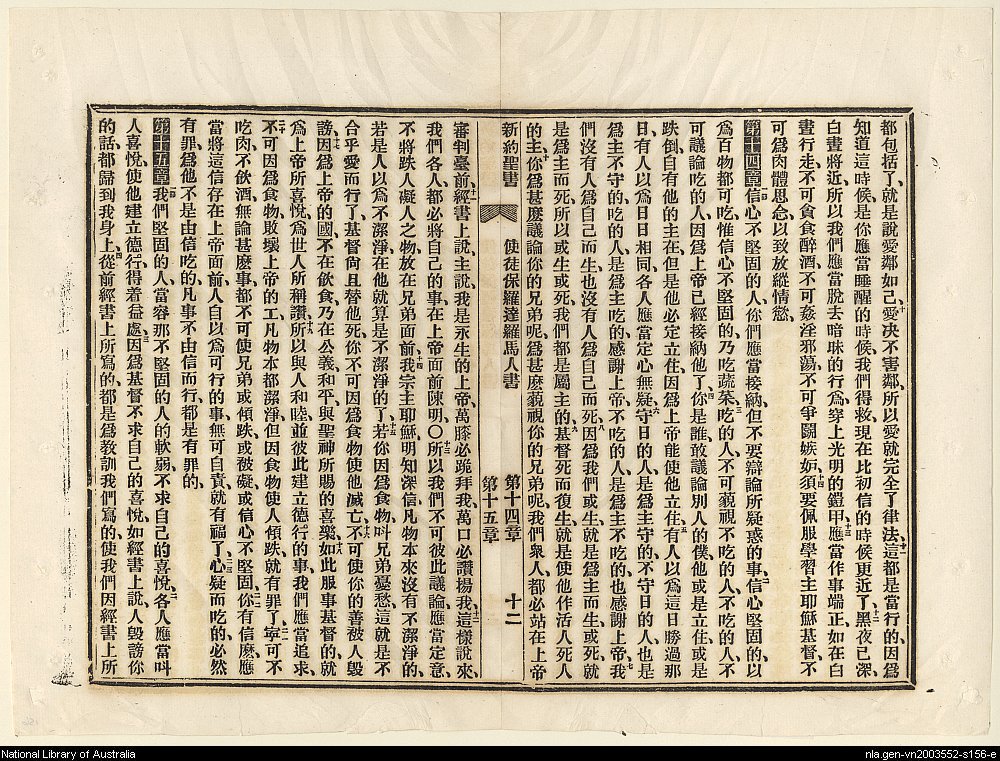 都包括了、就是說愛鄰如己、十愛決不害鄰、所以愛就完全了律法、十一這都是當行的、因爲
知道這時候、是你應當睡醒的時候、我們得救、現在比初信的時候更近了、十二黑夜已深、
白晝將近、所以我們應當脫去暗昧的行爲、穿上光明的鎧甲、十三應當作事端正、如在白
晝行走、不可貪食醉酒、不可姦淫邪蕩、不可爭鬬嫉妬、十四須要佩服學習主耶穌基督、不
可爲肉體思念、以致放縱情慾、
第十四章一信心不堅固的人、你們應當接納、但不要辯論所疑惑的事、二信心堅固的、以
爲百物都可吃、惟信心不堅固的、乃吃蔬菜、三吃的人、不可藐視不吃的人、不吃的人、不
可議論吃的人、因爲上帝已經接納他了、四你是誰、敢議論別人的僕、他或是立住、或是
跌倒、自有他的主在、但是他必定立住、因爲上帝能使他立住、五有人以爲這日勝過那
日、有人以爲日日相同、各人應當定心無疑、六守日的人、是爲主守的、不守日的人、也是
爲主不守的、吃的人、是爲主吃的、感謝上帝、不吃的人、是爲主不吃的、也感謝上帝、七我
們沒有人爲自己而生、也沒有人爲自己而死、八因爲我們或生、就是爲主而生、或死、就
是爲主而死、所以或生或死、我們都是屬主的、九基督死而復生、就是使他作活人死人
的主、十你爲甚麼議論你的兄弟呢、爲甚麼藐視你的兄弟呢、我們衆人、都必站在上帝
新約聖書 使徒保羅達羅馬人書 第十四章 第十五章 十二
審判臺前、十一經書上說、主說、我是永生的上帝、萬膝必跪拜我、萬口必讚揚我、十二這樣說來、
我們各人、都必將自己的事、在上帝面前陳明〇十三所以我們不可彼此議論、應當定意、
不將跌人礙人之物、放在兄弟面前、十四我宗主耶穌、明知深信、凡物本來沒有不潔淨的、
若是人以爲不潔淨、在他就算是不潔淨的了、十五若你因爲食物、叫兄弟憂愁、這就是不
合乎愛而行了、基督尚且替他死、你不可因爲食物使他滅亡、十六不可使你的善被人毀
謗、十七因爲上帝的國、不在飲食、乃在公義、和平、與聖神所賜的喜樂、十八如此服事基督的、就
爲上帝所喜悅、爲世人所稱讚、十九所以與人和睦、並彼此建立德行的事、我們應當追求、
二十不可因爲食物、敗壞上帝的工、凡物本都潔淨、但因食物使人傾跌、就有罪了、二一寧可不
吃肉、不飲酒、無論甚麼事、都不可使兄弟或傾跌、或被礙、或信心不堅固、二二你有信麼、應
當將這信存在上帝面前、人自以爲可行的事、無可自責、就有福了、二三心疑而吃的、必然
有罪、爲他不是由信吃的、凡事不由信而行、都是有罪的、
第十五章一我們堅固的人、當容那不堅固的人的軟弱、不求自己的喜悅、二各人應當叫
人喜悅、使他建立德行、得着益處、三因爲基督不求自己的喜悅、如經書上說、人毀謗你
的話、都歸到我身上、四從前經書上所寫的、都是爲教訓我們寫的、使我們因經書上所
National Library of Australia
nla.gen-vn2003552-s156-e